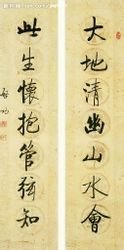 大地清幽山水會
此生懷抱管絃知
啓功